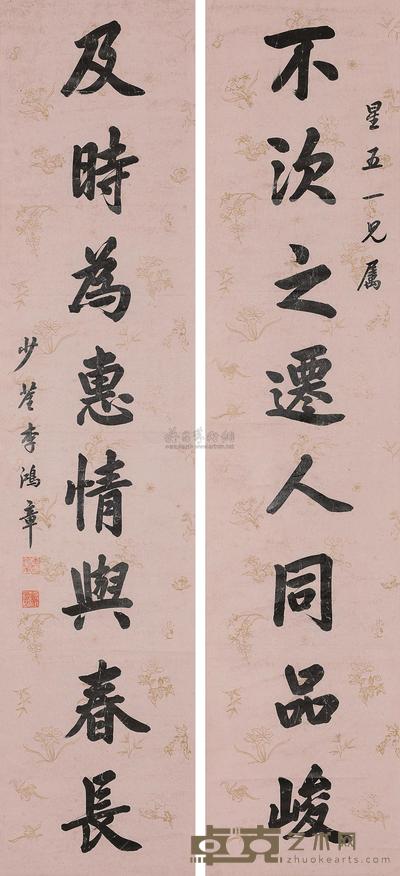 星五一兄属
不次之遷人同品峻
及時為惠情與春長
少荃李鴻章
卓克艺术网
zhuokearts.com